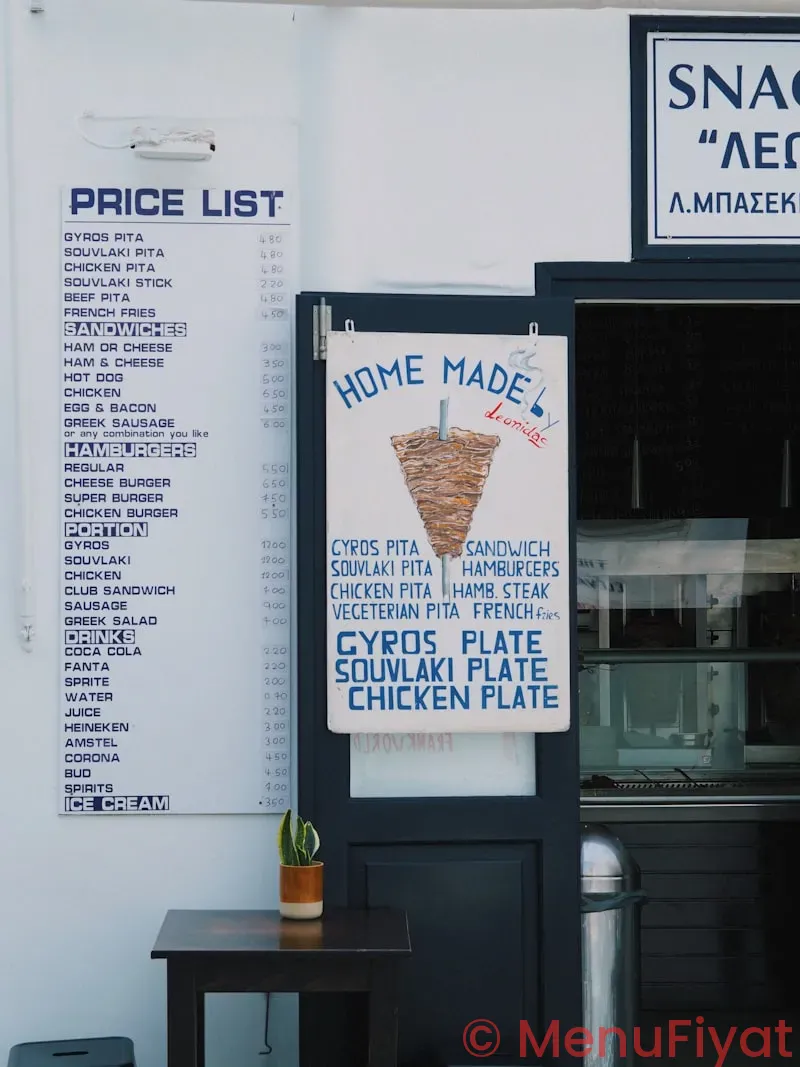 PRICE LIST
GYROS PITA 480
SOUVLAKI PITA 480
CHICKEN PITA 480
SOUVLAKI STICK 220
BEEF PITA 480
FRENCH FRIES 450
SANDWICHES
HAM OR CHEESE 300
HAM & CHEESE 350
HOT DOG 600
CHICKEN 650
EGG & BACON 450
GREEK SAUSAGE 600
or any combination you like
HAMBURGERS
REGULAR 550
CHEESE BURGER 650
SUPER BURGER 750
CHICKEN BURGER 550
PORTION
GYROS 1200
SOUVLAKI 1200
CHICKEN 1200
CLUB SANDWICH 700
SAUSAGE 900
GREEK SALAD 700
DRINKS
COCA COLA 220
FANTA 220
SPRITE 200
WATER 0.70
JUICE 220
HEINEKEN 300
AMSTEL 300
CORONA 450
BUD 450
SPIRITS 700
ICE CREAM 350
HOME MADE by
Leonidas
GYROS PITA SANDWICH
SOUVLAKI PITA HAMBURGERS
CHICKEN PITA HAMB. STEAK
VEGETERIAN PITA FRENCH fries
GYROS PLATE
SOUVLAKI PLATE
CHICKEN PLATE
FRANKWORLD
SNAC
“ΛΕΩ
Λ.ΜΠΑΣΕΚ
© MenuFiyat